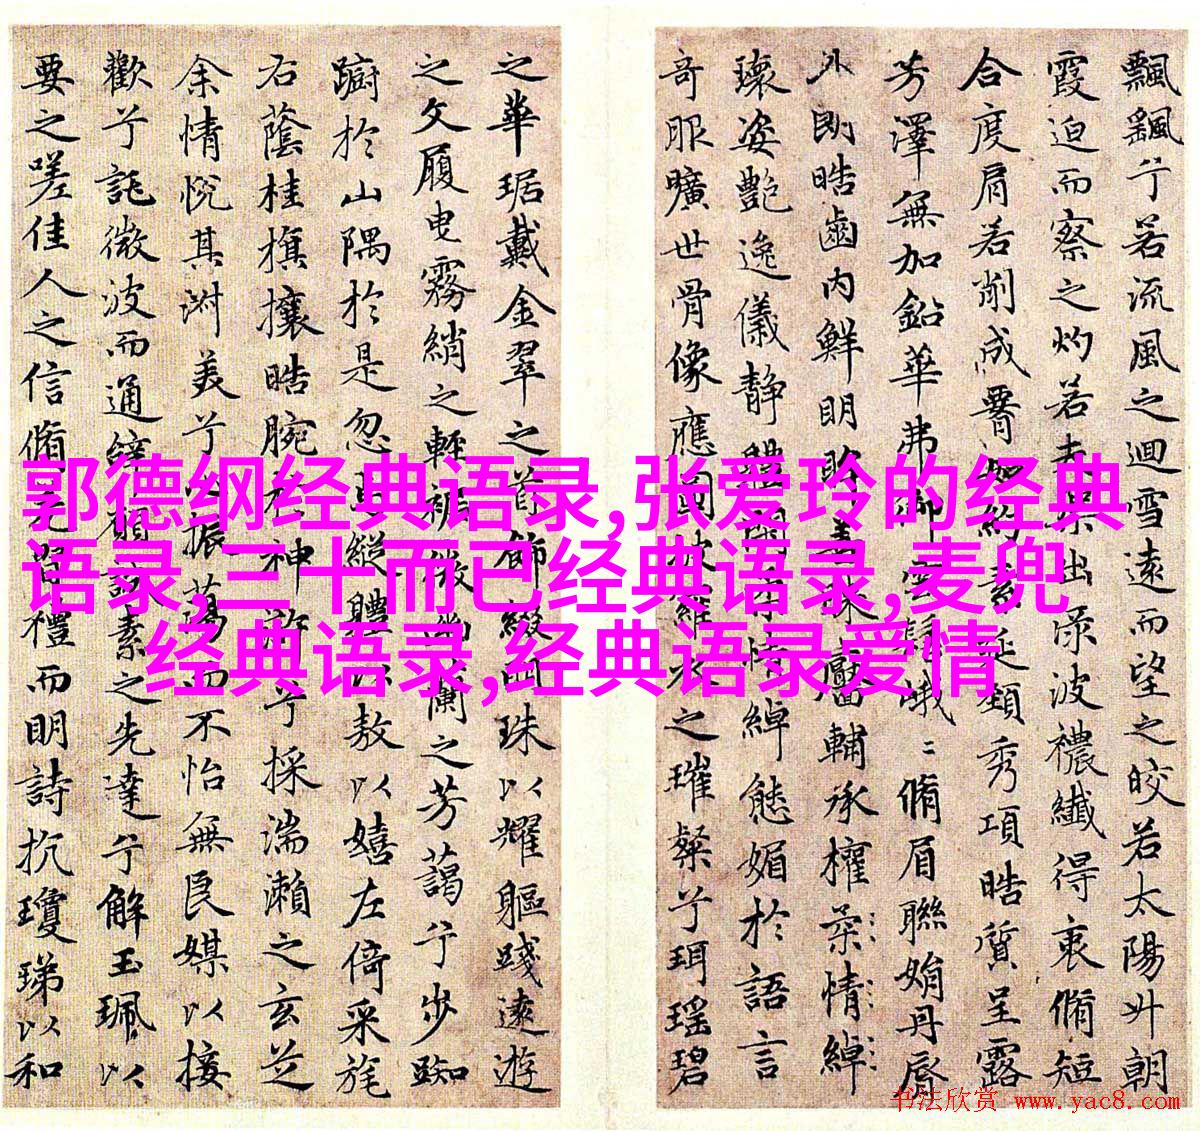 飄飖兮若流風之迴雪遠而望之皎若太陽升朝
霞迫而察之灼若
出淥波襛纖得衷脩短
合度肩若削成
素延頸秀項皓質呈露
芳澤無加鉛華弗御
峨〻脩眉聯娟丹脣
外朗皓齒内鮮明眸善
靨輔承權
瓌姿艷逸儀静體閑
情綽態媚於語言
奇服曠世骨像應圖披羅衣之璀粲兮珥瑶碧
之華琚戴金翠之首飾綴明珠以耀軀踐遠遊
之文履曳霧綃之輕裾微幽蘭之芳藹兮步踟
蹰於山隅於是忽焉縱體以敖以嬉左倚采旄
右蔭桂旗攘皓腕於神滸兮採湍瀨之玄芝
余情悅其淑美兮心振蕩而不怡無良媒以接
歡兮託微波而通辭願誠素之先達兮解玉珮以
要之嗟佳人之信脩羌習禮而明詩抗瓊珶以和
郭德纲经典语录,张爱玲的经典
语录,三十而已经典语录,麦兜
经典语录,经典语录爱情
书法欣赏 www.yac8.com